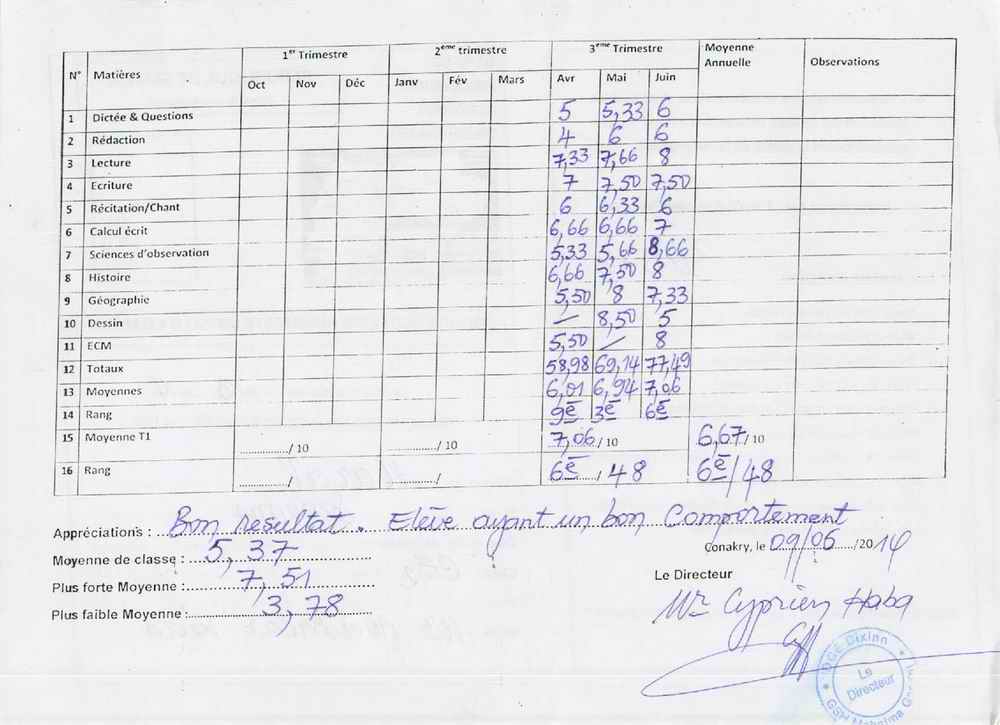 N° Matières 1er Trimestre 2ème trimestre 3ème Trimestre Moyenne Annuelle Observations
Oct Nov Déc Janv Fév Mars Avr Mai Juin
1 Dictée & Questions 5 5,33 6
2 Rédaction 4 6 6
3 Lecture 7,33 7,66 8
4 Ecriture 7 7,50 7,50
5 Récitation/Chant 6 6,33 6
6 Calcul écrit 6,66 6,66 7
7 Sciences d'observation 5,33 5,66 8,66
8 Histoire 6,66 7,50 8
9 Géographie 5,50 8 7,33
10 Dessin — 8,50 5
11 ECM 5,50 — 8
12 Totaux 58,98 69,14 77,49
13 Moyennes 6,01 6,94 7,06
14 Rang 9e 3e 6e
15 Moyenne T1 ............../ 10 ............../ 10 7,06 / 10 6,67 / 10
16 Rang ............../ ............../ 6e / 48 6e / 48
Appréciations : Bon resultat. Elève ayant un bon Comportement
Moyenne de classe : 5,37
Conakry, le 09/06/2014
Plus forte Moyenne : 7,51
Le Directeur
Plus faible Moyenne : 3,78
Mr Cyprien Haba
DCE Dixinn
Le Directeur